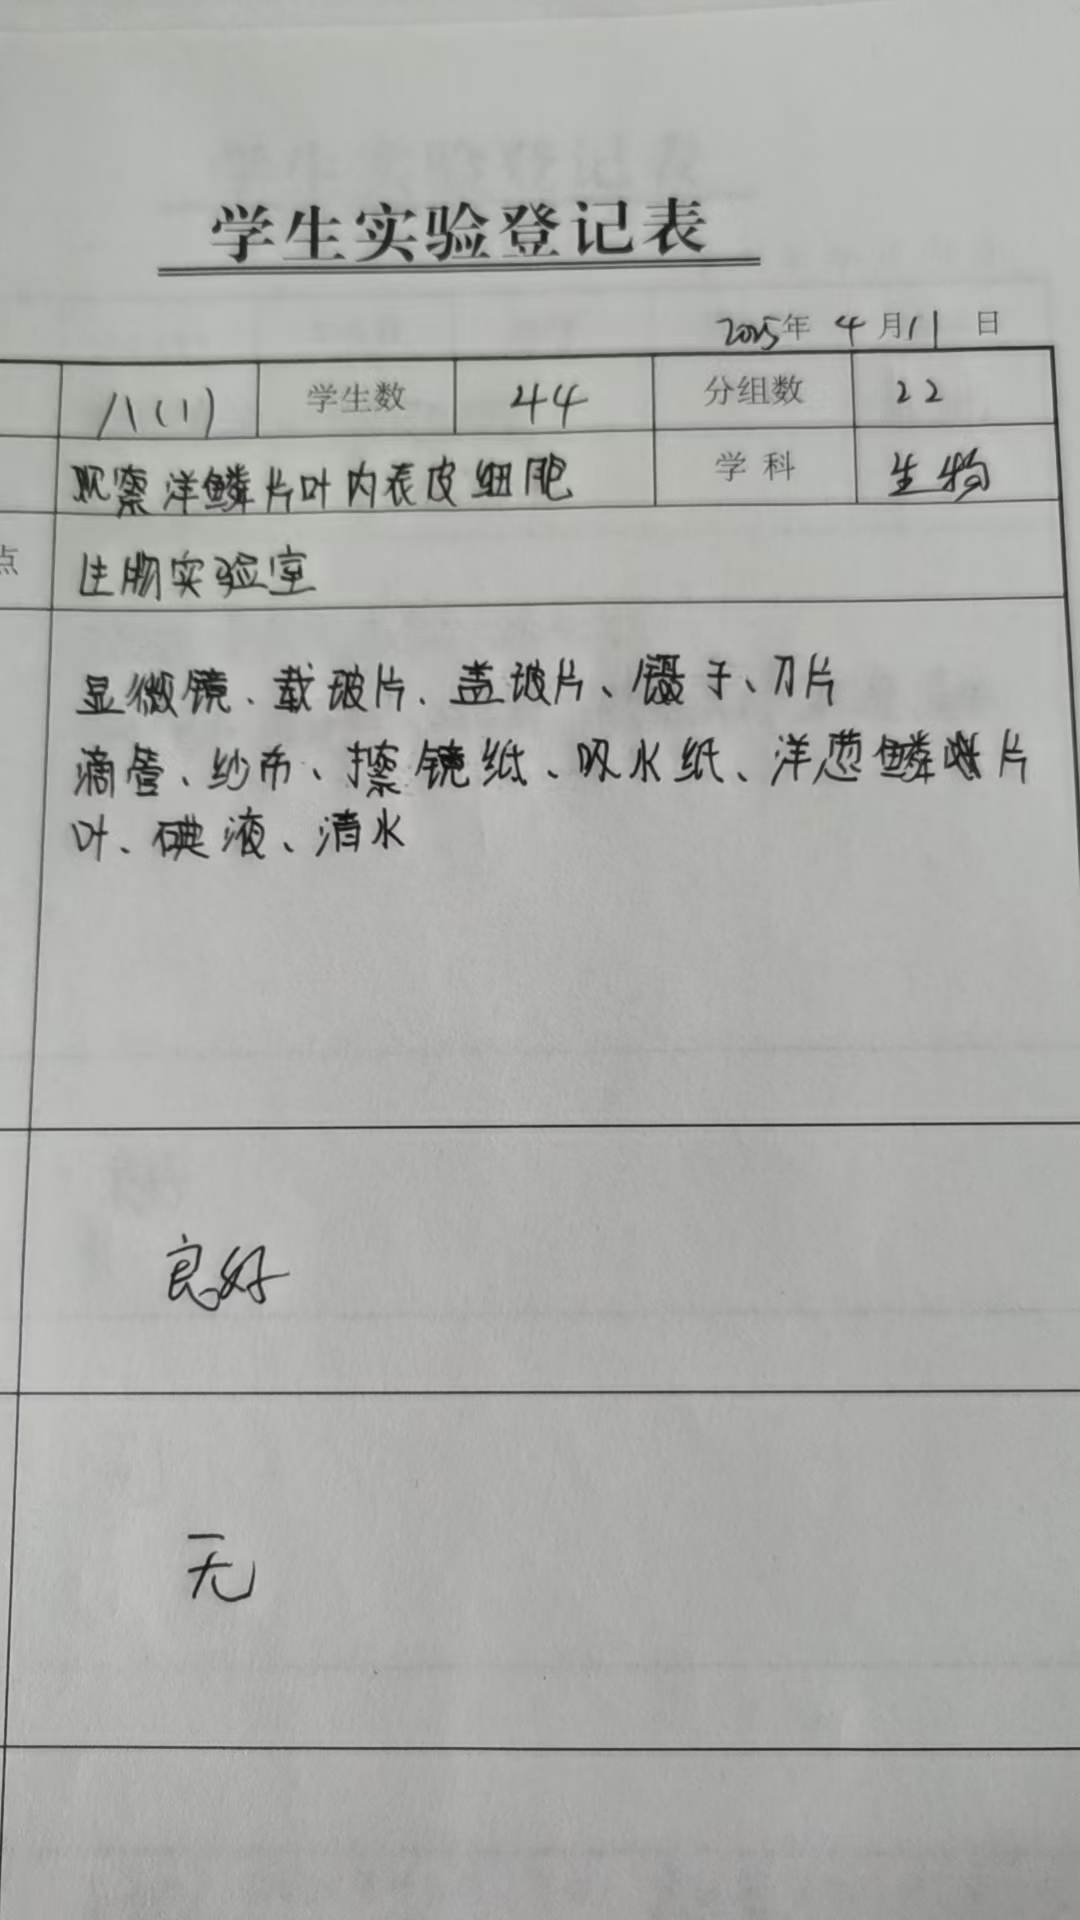 学生实验登记表
2025年 4月11日
八(1) 学生数 44 分组数 22
观察洋鳞片叶内表皮细胞 学科 生物
点 生物实验室
显微镜、载玻片、盖玻片、镊子、刀片
滴管、纱布、擦镜纸、吸水纸、洋葱鳞片
叶、碘液、清水
良好
无